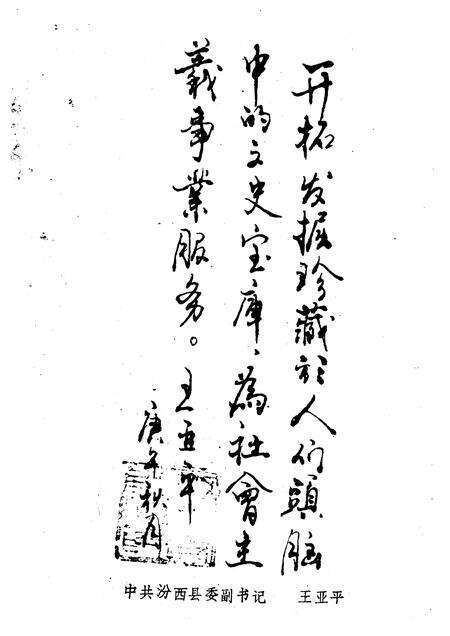 开拓发掘珍藏於人们頭脑
中的文史宝庫，為社會主
義事業服务。王亚平
庚午秋月
中共汾西县委副书记 王亚平